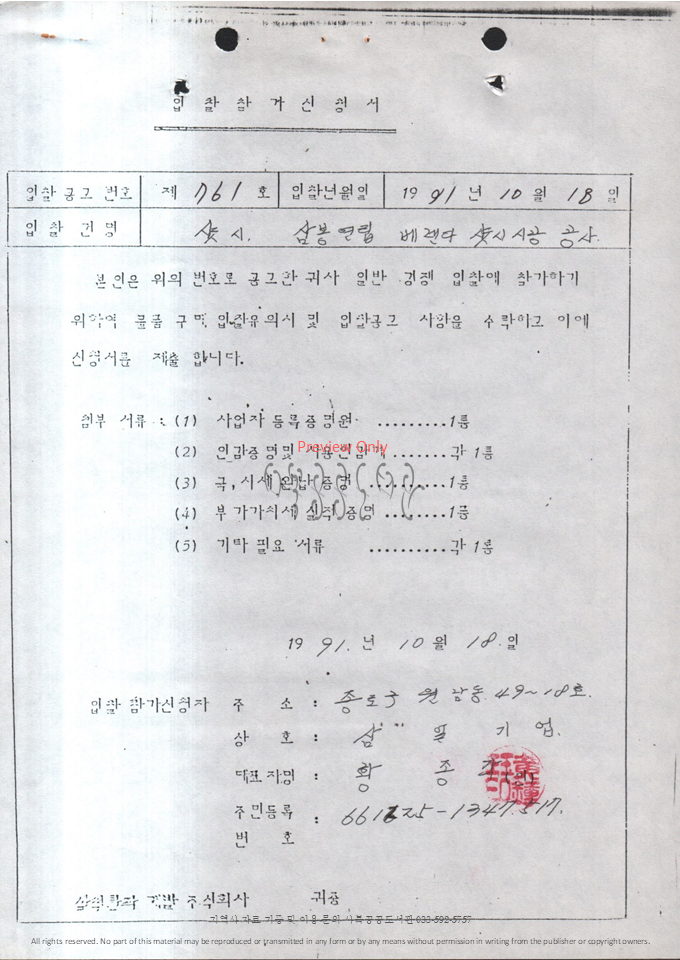 입찰참가신청서
입찰공고 번호 제 761 호 입찰년월일 1991 년 10 월 18 일
입찰건명 샷시. 삼봉연립 베렌다 샷시시공 공사.
본인은 위의 번호로 공고한 귀사 일반 경쟁 입찰에 참가하기
위하여 물품 구매 입찰유의서 및 입찰공고 사항을 수락하고 이에
신청서를 제출 합니다.
첨부 서류 : (1) 사업자 등록증명원 .........1통
Preview Only
(2) 인감증명및 사용인감계 .......각 1통
(3) 국,시세완납증명 .........1통
(4) 부가가치세 실적증명 ........1통
(5) 기타 필요 서류 .........각 1통
1991. 년 10 월 18. 일
입찰 참가신청자 주 소 : 종로구 원남동 49~18호.
상 호 : 삼 일 기 업.
대표자명 : 황 종 (인)
주민등록
번 호 :
주식회사 귀중
지역사 자료 기증 및 이용 문의 사북공공도서관 033-592-5757
All rights reserved. No part of this material may be reproduced or transmitted in any form or by any means without permission in writing from the publisher or copyright owners.